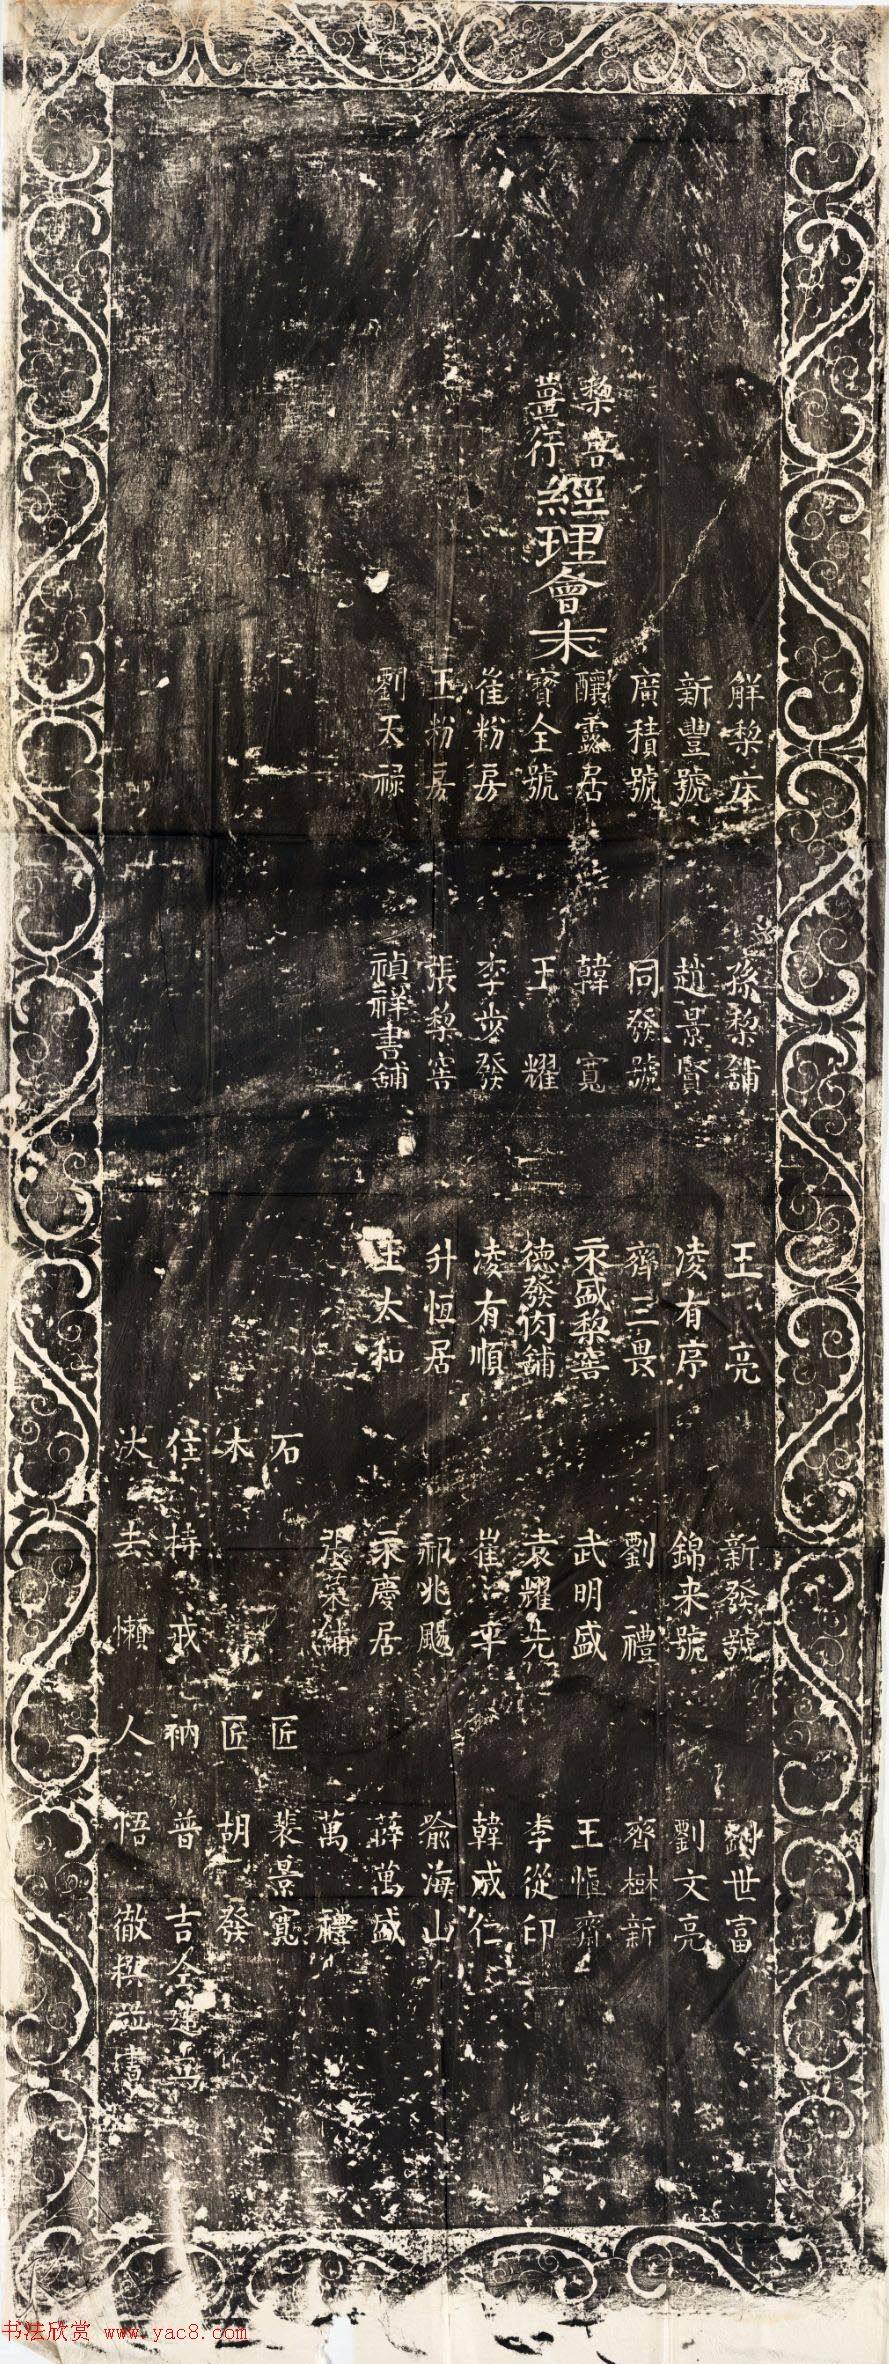 黎窖
黨行
經理會末
解黎床
新豐號
廣積號
釀露居
寶全號
崔粉房
王粉房
劉天祿
孫黎舖
趙景賢
同發號
韓寬
王耀
李步發
張黎窖
禎祥書舖
王亮
凌有序
齊三畏
永盛黎窖
德發肉舖
凌有順
升恒居
王太和
新發號
錦来號
劉禮
武明盛
袁耀先
崔平
祁兆颺
永慶居
張菜舖
劉世富
劉文亮
齊樹新
王恒齋
李從印
韓成仁
喻海山
薛萬盛
萬禮
石匠裴景寬
木匠胡發
住持戒衲普吉仝建立
沃去懶人悟徹撰並書
书法欣赏 www.yac8.com